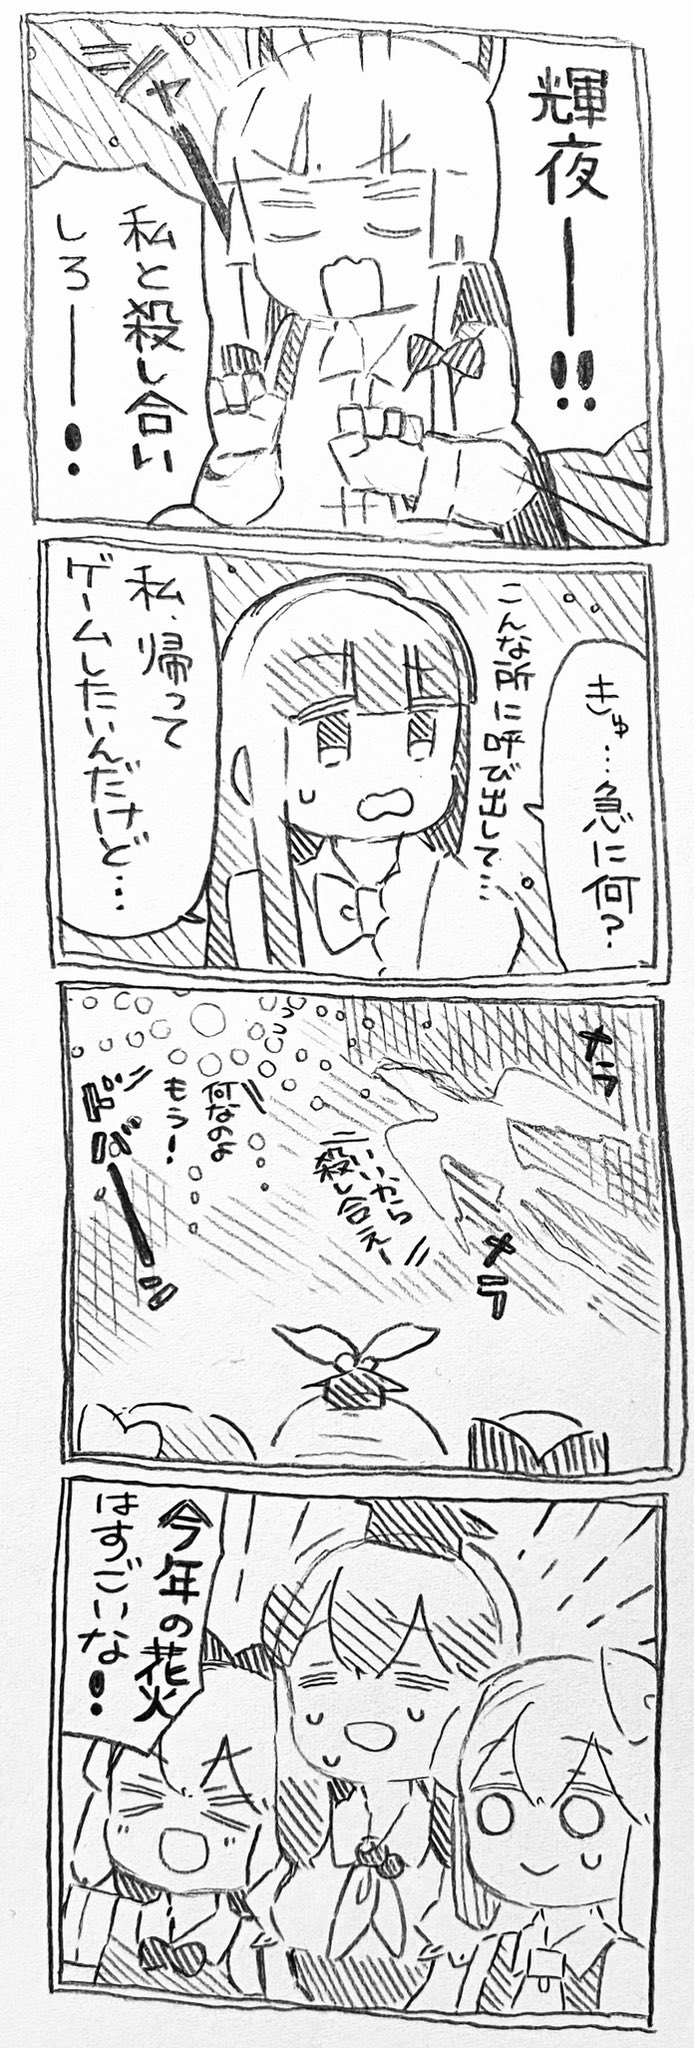 輝夜ー!!
ジャ
私と殺し合い
しろー!
きゅ…急に何?
こんな所に呼び出して…
私、帰って
ゲームしたいんだけど…
メラ
メラ
いいから
殺し合えー
何なのよ
もう!
ドバーン
今年の花火
はすごいな!